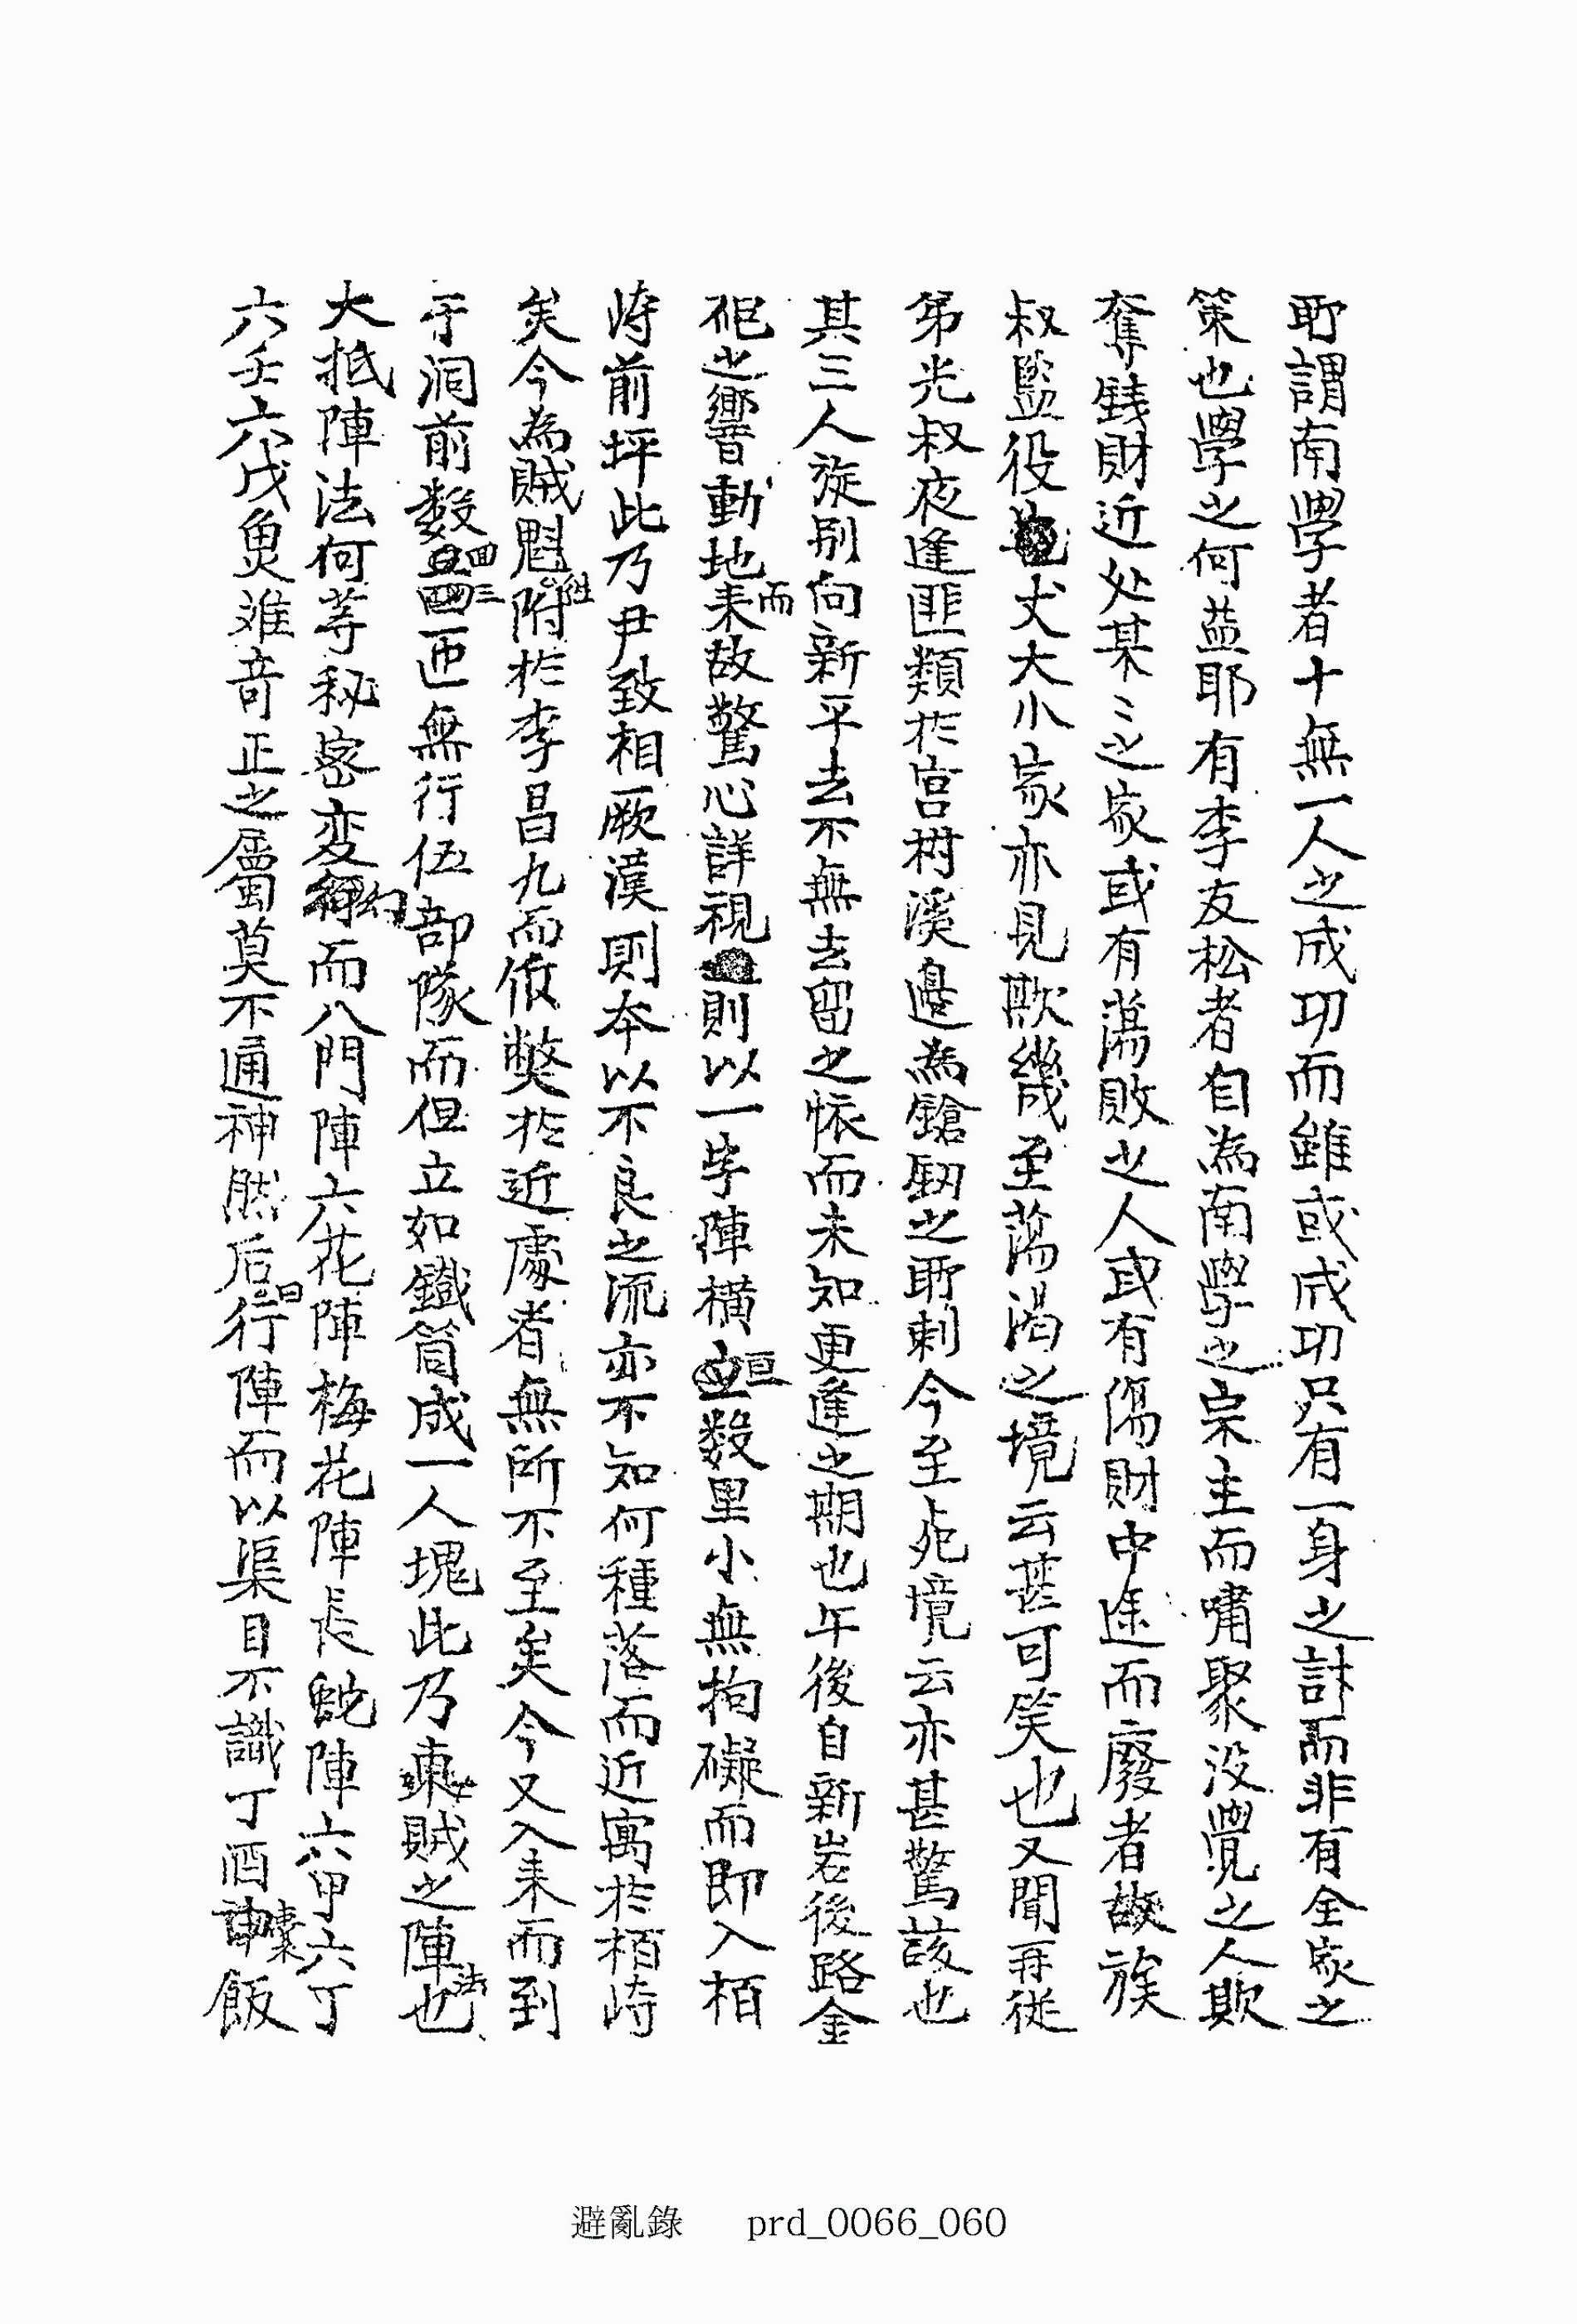 所謂南學者十無一人之成功而雖或成功只有一身之計而非有全家之
策也學之何益耶有李友松者自為南學之宗主而嘯聚没覺之人欺
奪錢財近处某〻之家或有蕩敗之人或有傷財中途而廢者故族
叔監役丈大小家亦見欺幾至蕩渴之境云甚可笑也又聞再從
弟光叔夜逢匪類於宮村溪邊為鎗劒之所刺今至死境云亦甚驚該也
其三人旋別向新平去不無去留之悵而未知更逢之期也午後自新岩後路金
之響動地而来故驚心詳視則以一字陣橫亘数里小無拘礙而即入栢
峙前坪此乃尹致相厥漢則本以不良之流亦不知何種落而近寓於栢峙
矣今為賊魁附於李昌九而作弊於近處者無所不至矣今又入来而到
于洞前数三匝無行伍部隊而但立如鐵筒成一人塊此乃東賊之陣法也
大抵陣法何等秘密変幻而八門陣六花陣梅花陣長蛇陣六甲六丁
六壬六戊魚难奇正之屬莫不通神然后曰行陣而以渠目不識丁酒囊飯
避亂錄 prd_0066_060